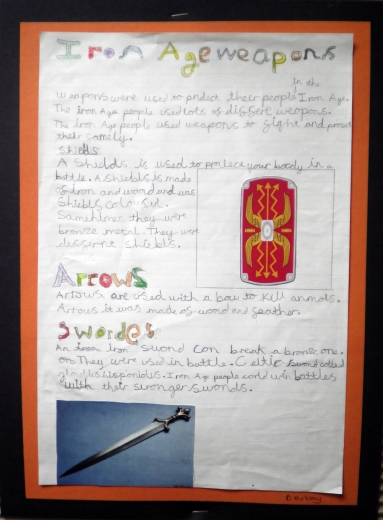 Iron Age weapons
in the
Weapons were used to protect their people Iron Age.
The iron Age people used lots of dissert weapons.
The iron Age people used weapons to fight and protect
their family.
shields
A Shields is used to protect your body in a
battle. A shields is made
of iron and wood and was
shields colou
Sometimes they were
bronze metal. They were
dissirant shields.
Arrows
Arrows are used with a bow to kill animals.
Arrows it was made of wood and feather.
Swordes
An iron Iron sword can break a bronze one.
on They were used in battle. Celtic sword called
gladius hispanidis. Iron Age people could win battles
with their stronger swords.